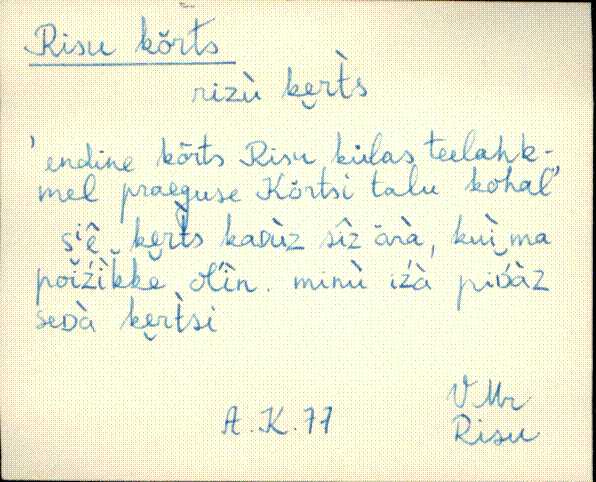 Risu kõrts
rizù ke̮rt̀s
'endine kõrts Risu külas teelahk-
mel praeguse Kõrtsi talu kohal'
si̯ê ke̮rt̀s kaᴅùz sîz ärà, kuì ma
poiźìkke̮ oĺin. minù iźà piᴅàz
seᴅà ke̮rt̀si
A.K. 77
V Mr
Risu